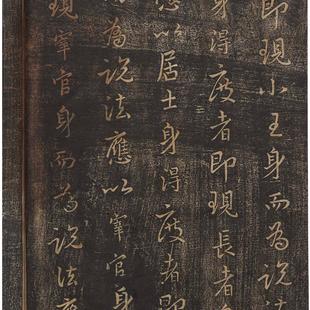 即現小王身而為説法
身得度者即現長者
應以居士身得度者即
為説法應以宰官身
現宰官身而為説法應